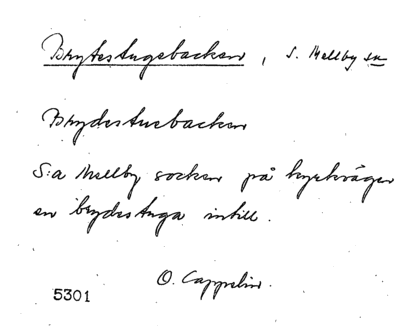 Brytestugebacken, S. Mellby sn
Brydestuebacken
S:a Mellby socken på kyrkvägen
en brydestuga intill.
O. Cappelin.
5301